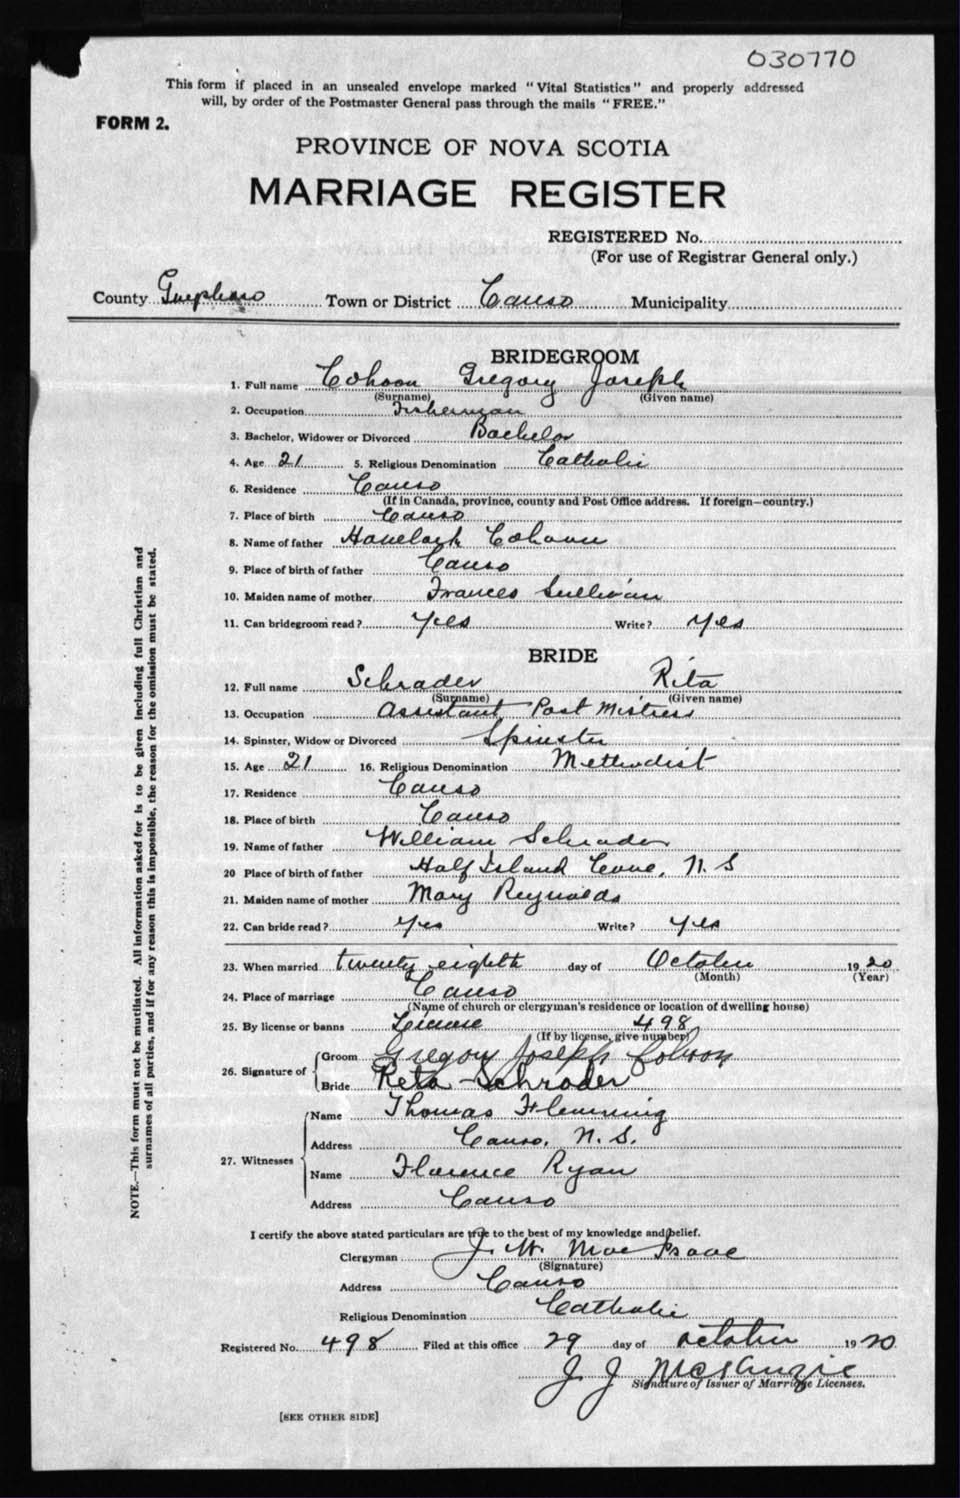 030770
This form if placed in an unsealed envelope marked "Vital Statistics" and properly addressed
will, by order of the Postmaster General pass through the mails "FREE."
FORM 2.
PROVINCE OF NOVA SCOTIA
MARRIAGE REGISTER
REGISTERED No.
(For use of Registrar General only.)
County Town or District Canso Municipality
BRIDEGROOM
1. Full name Cohoon Gregory Joseph
(Surname) (Given name)
2. Occupation Fisherman
3. Bachelor, Widower or Divorced Bachelor
4. Age 21 5. Religious Denomination Catholic
6. Residence Canso
(If in Canada, province, county and Post Office address. If foreign—country.)
7. Place of birth Canso
8. Name of father Havelock Cohoon
9. Place of birth of father Canso
10. Maiden name of mother Frances Sullivan
11. Can bridegroom read? Yes Write? Yes
BRIDE
12. Full name Schrader Rita
(Surname) (Given name)
13. Occupation Assistant Post Mistress
14. Spinster, Widow or Divorced Spinster
15. Age 21 16. Religious Denomination Methodist
17. Residence Canso
18. Place of birth Canso
19. Name of father William Schrader
20 Place of birth of father Half Island Cove, N.S
21. Maiden name of mother Mary Reynolds
22. Can bride read? Yes Write? Yes
23. When married twenty eighth day of October 1920
(Month) (Year)
24. Place of marriage Canso
(Name of church or clergyman's residence or location of dwelling house)
25. By license or banns License 498
(If by license, give number)
26. Signature of
Groom Gregory Joseph Cohoon
Bride Reta Schrader
27. Witnesses
Name Thomas Flemming
Address Canso, N.S.
Name Florence Ryan
Address Canso
I certify the above stated particulars are true to the best of my knowledge and belief.
Clergyman J. W. MacIsaac
(Signature)
Address Canso
Religious Denomination Catholic
Registered No. 498 Filed at this office 29 day of October 1920
J J McKenzie
Signature of Issuer of Marriage Licenses.
[SEE OTHER SIDE]
NOTE.—This form must not be mutilated. All information asked for is to be given including full Christian and
surnames of all parties, and if for any reason this is impossible, the reason for the omission must be stated.